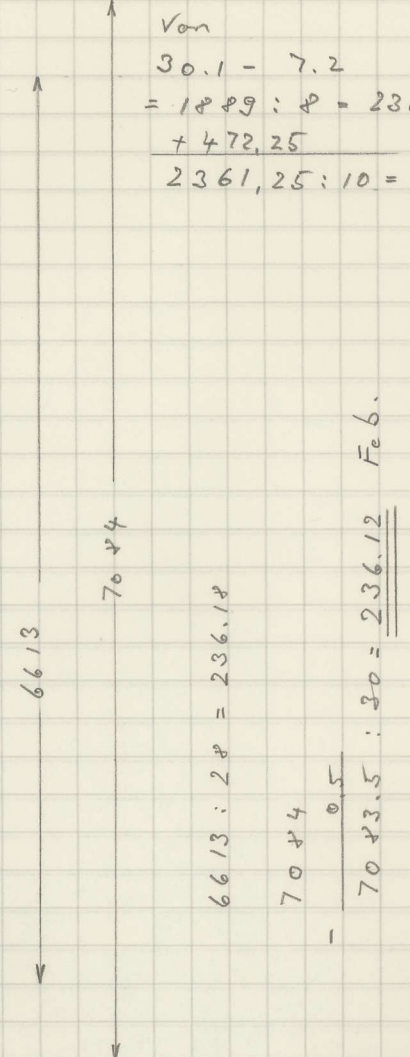 Von
30.1 - 7.2
= 1889 : 8 = 23
+ 472,25
2361,25 : 10 =
6613
7084
6613 : 28 = 236.18
7084
- 0.5
7083.5 : 30 = 236.12 Feb.